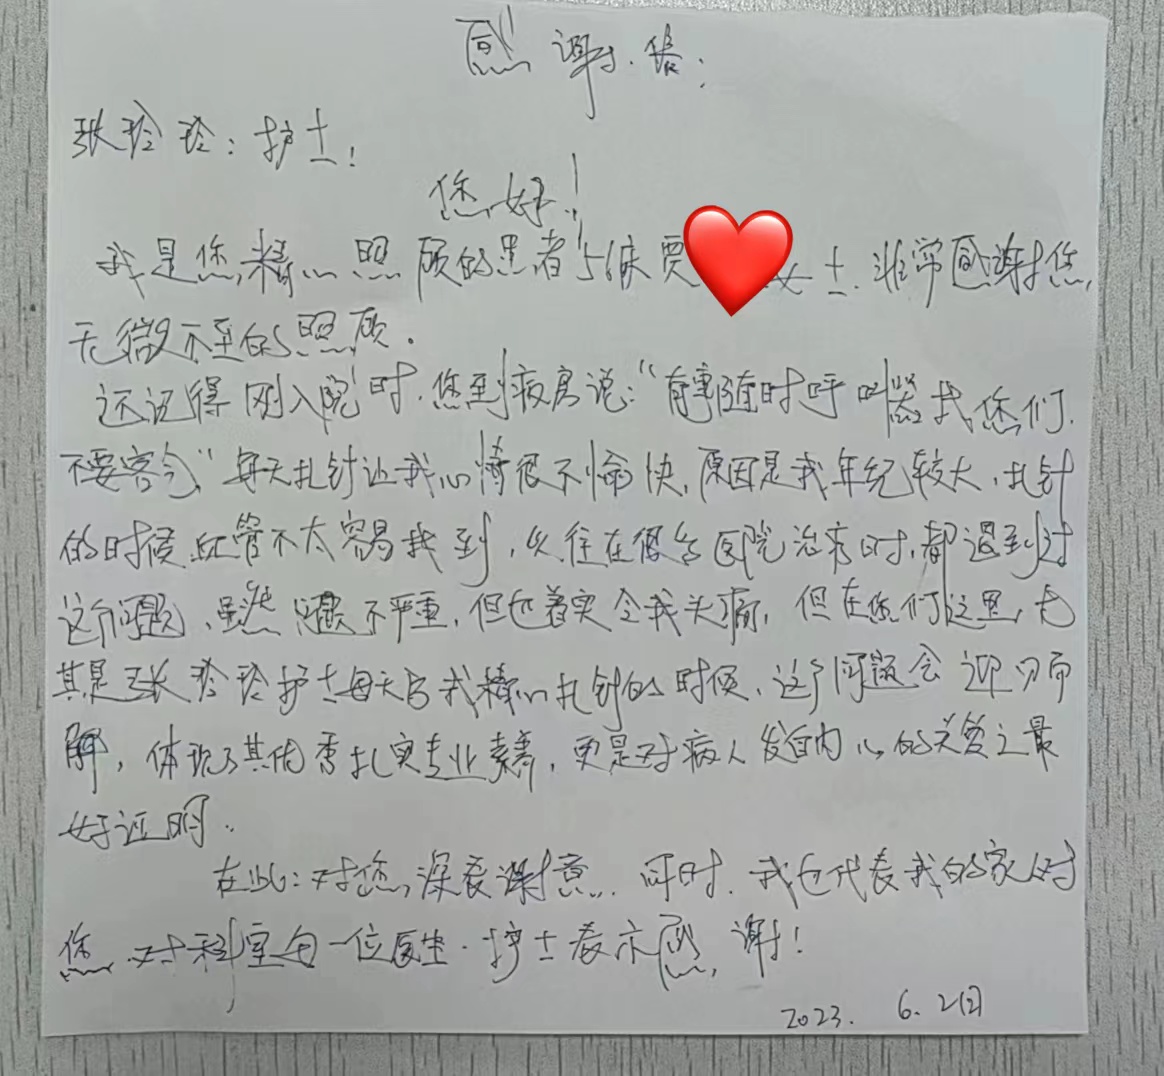 感谢信:
张玲玲:护士!
您好!
我是您精心照顾的患者56床贾女士.非常感谢您,
无微不至的照顾.
还记得刚入院时.您到病房说:"有事随时呼叫器找您们.
不要客气"每天扎针让我心情很不愉快,原因是我年纪较大,扎针
的时候血管不太容易找到,以往在很多医院治疗时,都遇到过
这个问题,虽然问题不严重,但也着实令我头痛,但在您们这里,尤
其是张玲玲护士每天与我精心扎针的时候,这个问题会迎刃而
解,体现了其优秀扎实专业素养,更是对病人发自内心的关爱之最
好证明.
在此:对您,深表谢意.同时.我也代表我的家人对
您.对科室每一位医生.护士表示感谢!
2023. 6.2日